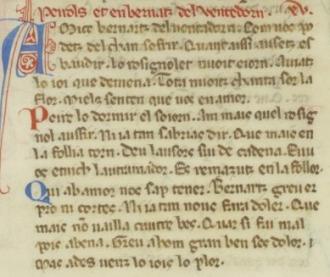 Peirols et en bernatz del ventedorn. xv.
Amics bernartz del ventadorn. Com vos po
detz del chan soffrir. Quant aissi ausetz es
baudir. lo rosignolet nuoit e iorn. Auiatz
lo ioi que demena. Tota nuoitz chanta sor la
flor. Mielz senten que vos en amor.
Peirol lo dormir el soiorn. Am mais quel rosig
nol auzir. Ni ia tan sabrias dir. Que mais en
la follia torn. Deu lau fors sui de cadena. E vos
e tuich lautr amador. Es remazut en la follor.
Qui ab amor nos sap tener. Bernartz greu er
pro ni cortes. Ni ia tan nous fara doler. Que
mais nous ualla cautre bes. Quar si fai mal
pois abena. Greu a hom gran ben ses dolor.
Mas ades uenz lo iois lo plor.